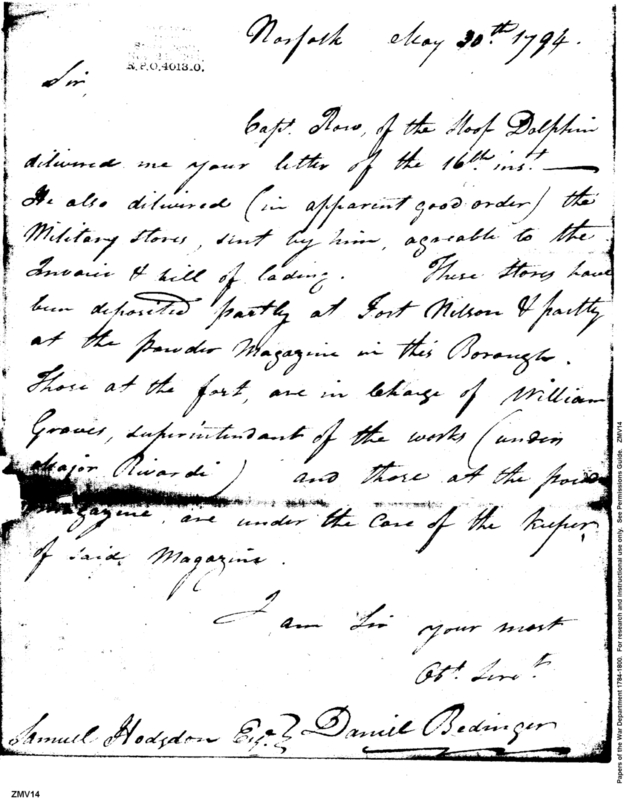 Norfolk May 30th 1794.
R.P.O.4013.0.
Sir,
Capt. Row, of the Sloop Dolphin
dilivered me your letter of the 16th inst. —
He also dilivered (in apparent good order) the
Military Stores, sent by him, agreable to the
Invoice & bill of lading. These Stores have
been deposited partly at Fort Nelson & partly
at the powder Magazine in this Borough.
Those at the fort, are in Charge of William
Graves, superintendant of the works (under
Major Rivardi) and those at the powder
magazine, are under the Care of the keeper
of said Magazine.
I am Sir your most
Obt. Servt.
Samuel Hodgdon Esqr. Daniel Bedinger
ZMV14
Papers of the War Department 1784-1800. For research and instructional use only. See Permissions Guide. ZMV14